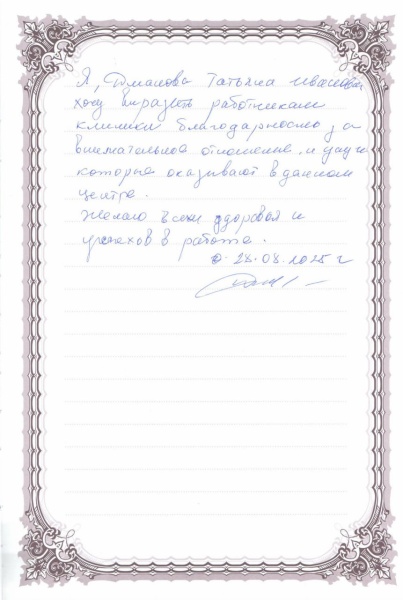 Я, Татьяна Ивановна
хочу выразить работникам
клиники благодарность за
внимательное отношение и
которые оказывают в данном
центре.
Желаю всем здоровья и
успехов в работе.
28.08.2025 г